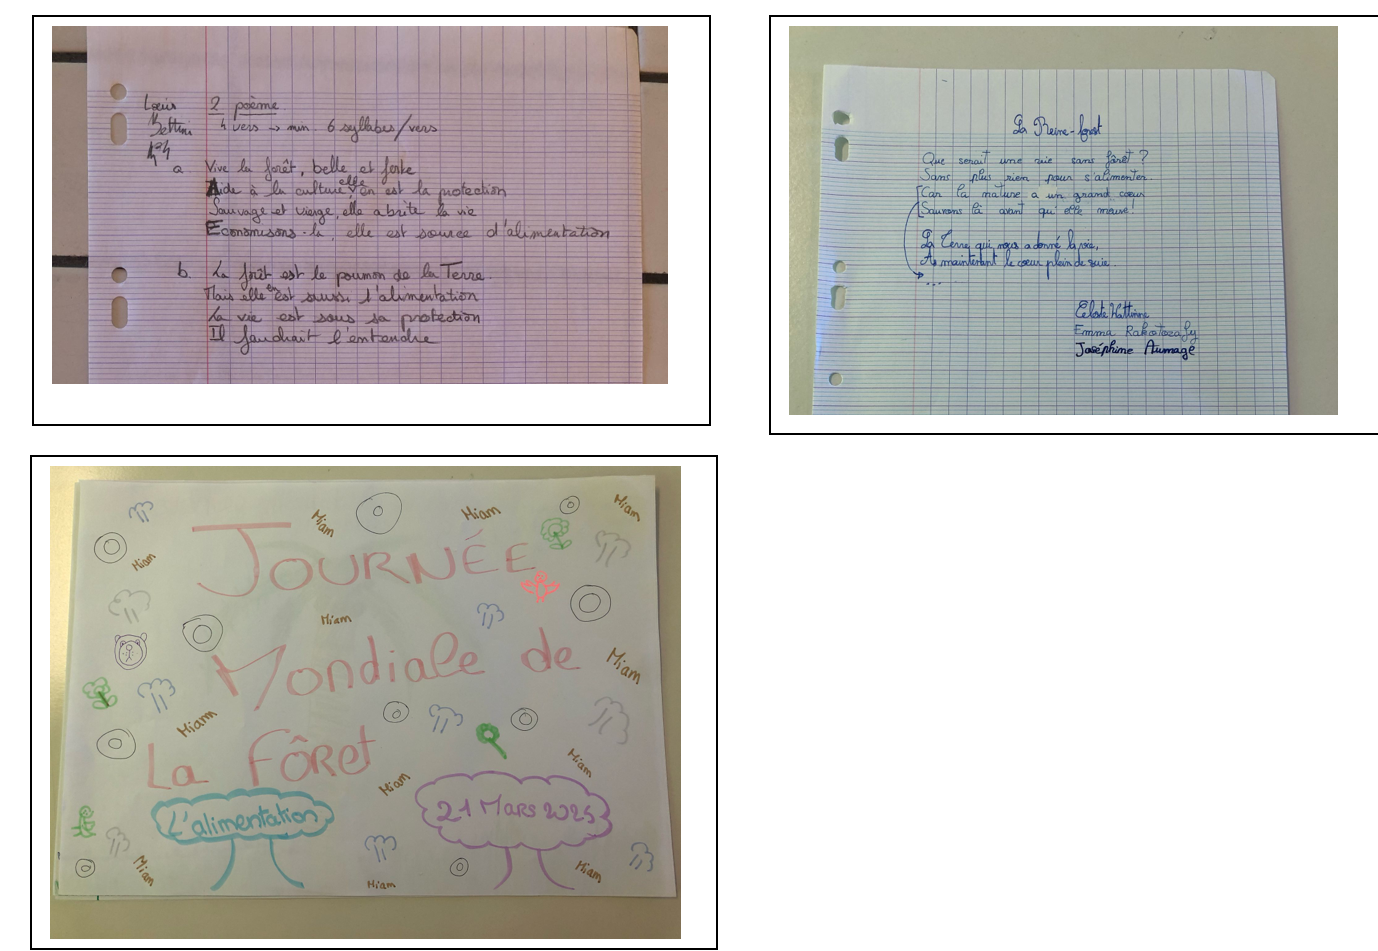 Louis
2 poème
Bettini
4 vers → min. 6 syllabes/vers
a Vive la forêt, belle et forte
Aide à la culture, elle en est la protection
Sauvage et vierge, elle abrite la vie
Economisons-la, elle est source d'alimentation
b. La forêt est le poumon de la Terre.
Mais elle en est aussi l'alimentation
La vie est sous sa protection
Il faudrait l'entendre
La Reine-forêt
Que serait une vie sans fôret ?
Sans plus rien pour s'alimenter.
Car la nature a un grand coeur
Sauvons là avant qu'elle meure!
La Terre, qui nous a donné la vie,
A maintenant le coeur plein de suie.
...
Céleste
Emma Rakotozafy
Joséphine Aumage
Miam
Miam
Miam
JOURNÉE
Miam
Miam
Mondiale de
Miam
Miam
La Fôret
Miam
Miam
L'alimentation
21 Mars 2025
Miam
Miam
Miam